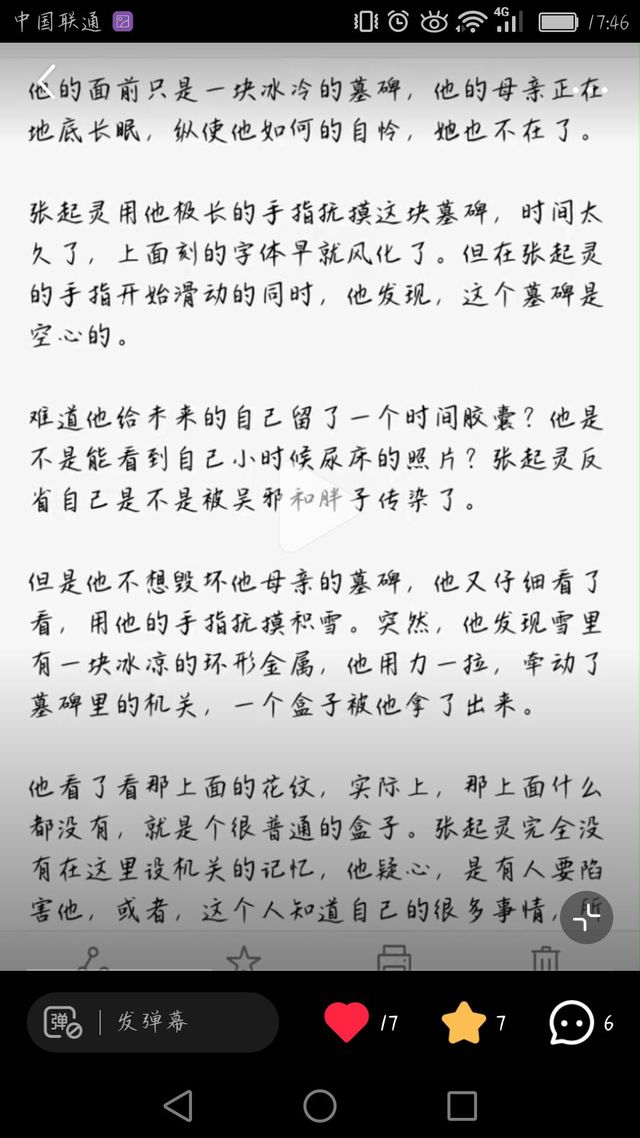 中国联通
4G
17:46
他的面前只是一块冰冷的墓碑，他的母亲正在
地底长眠，纵使他如何的自怜，她也不在了。
张起灵用他极长的手指抚摸这块墓碑，时间太
久了，上面刻的字体早就风化了。但在张起灵
的手指开始滑动的同时，他发现，这个墓碑是
空心的。
难道他给未来的自己留了一个时间胶囊？他是
不是能看到自己小时候尿床的照片？张起灵反
省自己是不是被吴邪和胖子传染了。
但是他不想毁坏他母亲的墓碑，他又仔细看了
看，用他的手指抚摸积雪。突然，他发现雪里
有一块冰凉的环形金属，他用力一拉，牵动了
墓碑里的机关，一个盒子被他拿了出来。
他看了看那上面的花纹，实际上，那上面什么
都没有，就是个很普通的盒子。张起灵完全没
有在这里设机关的记忆，他疑心，是有人要陷
害他，或者，这个人知道自己的很多事情，所
弹
发弹幕
17
7
6